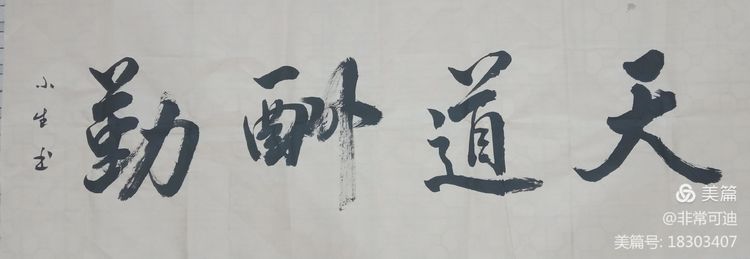 天道酬勤
小生书
美篇
@非常可迪
美篇号: 18303407